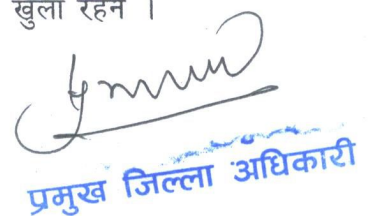 खुला रहने ।
प्रमुख जिल्ला अधिकारी